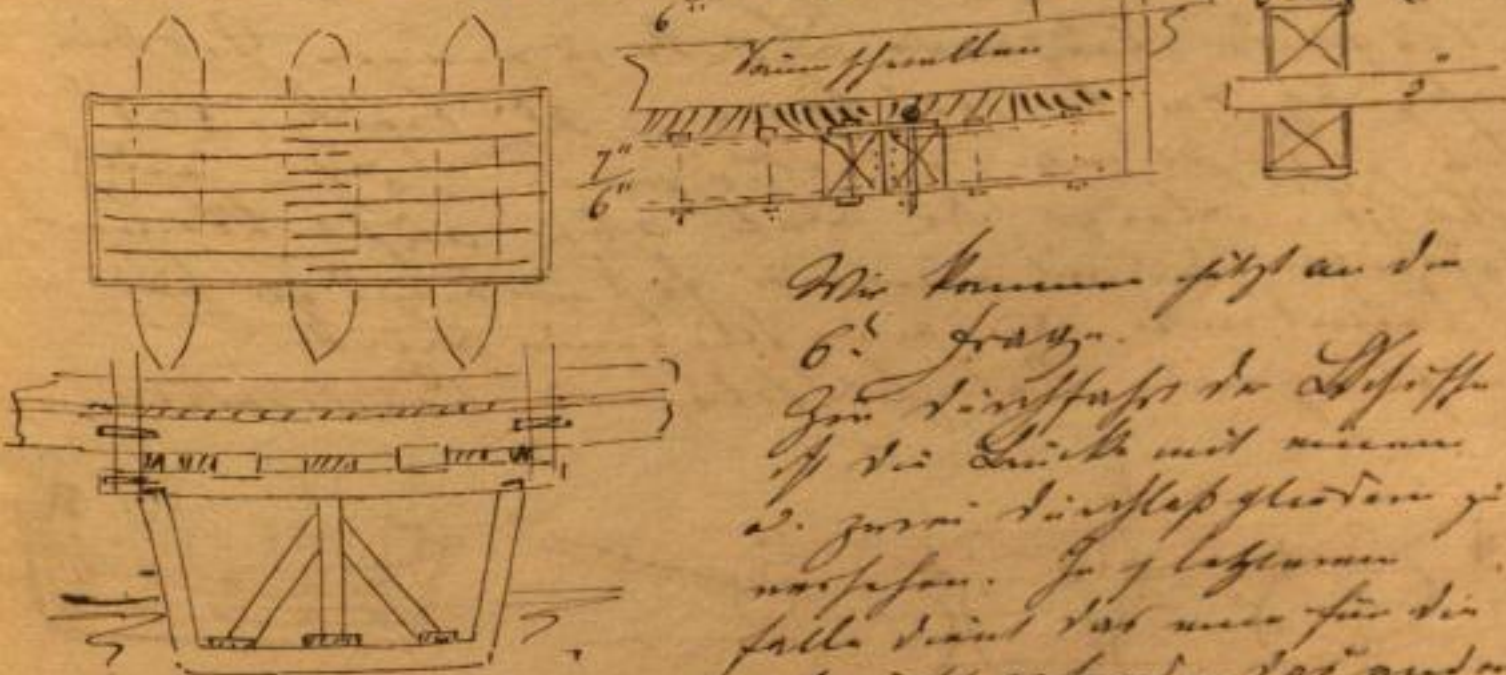 6"
Saumschwellen
3"
7"
6"
Wir kommen jetzt an die
6t Frage.
Zur Durchfahrt der Schiffe
ist die Brücke mit einem
o. zwei Durchlaßgliedern zu
versehen. In letzterem
Falle dient das eine für die
das